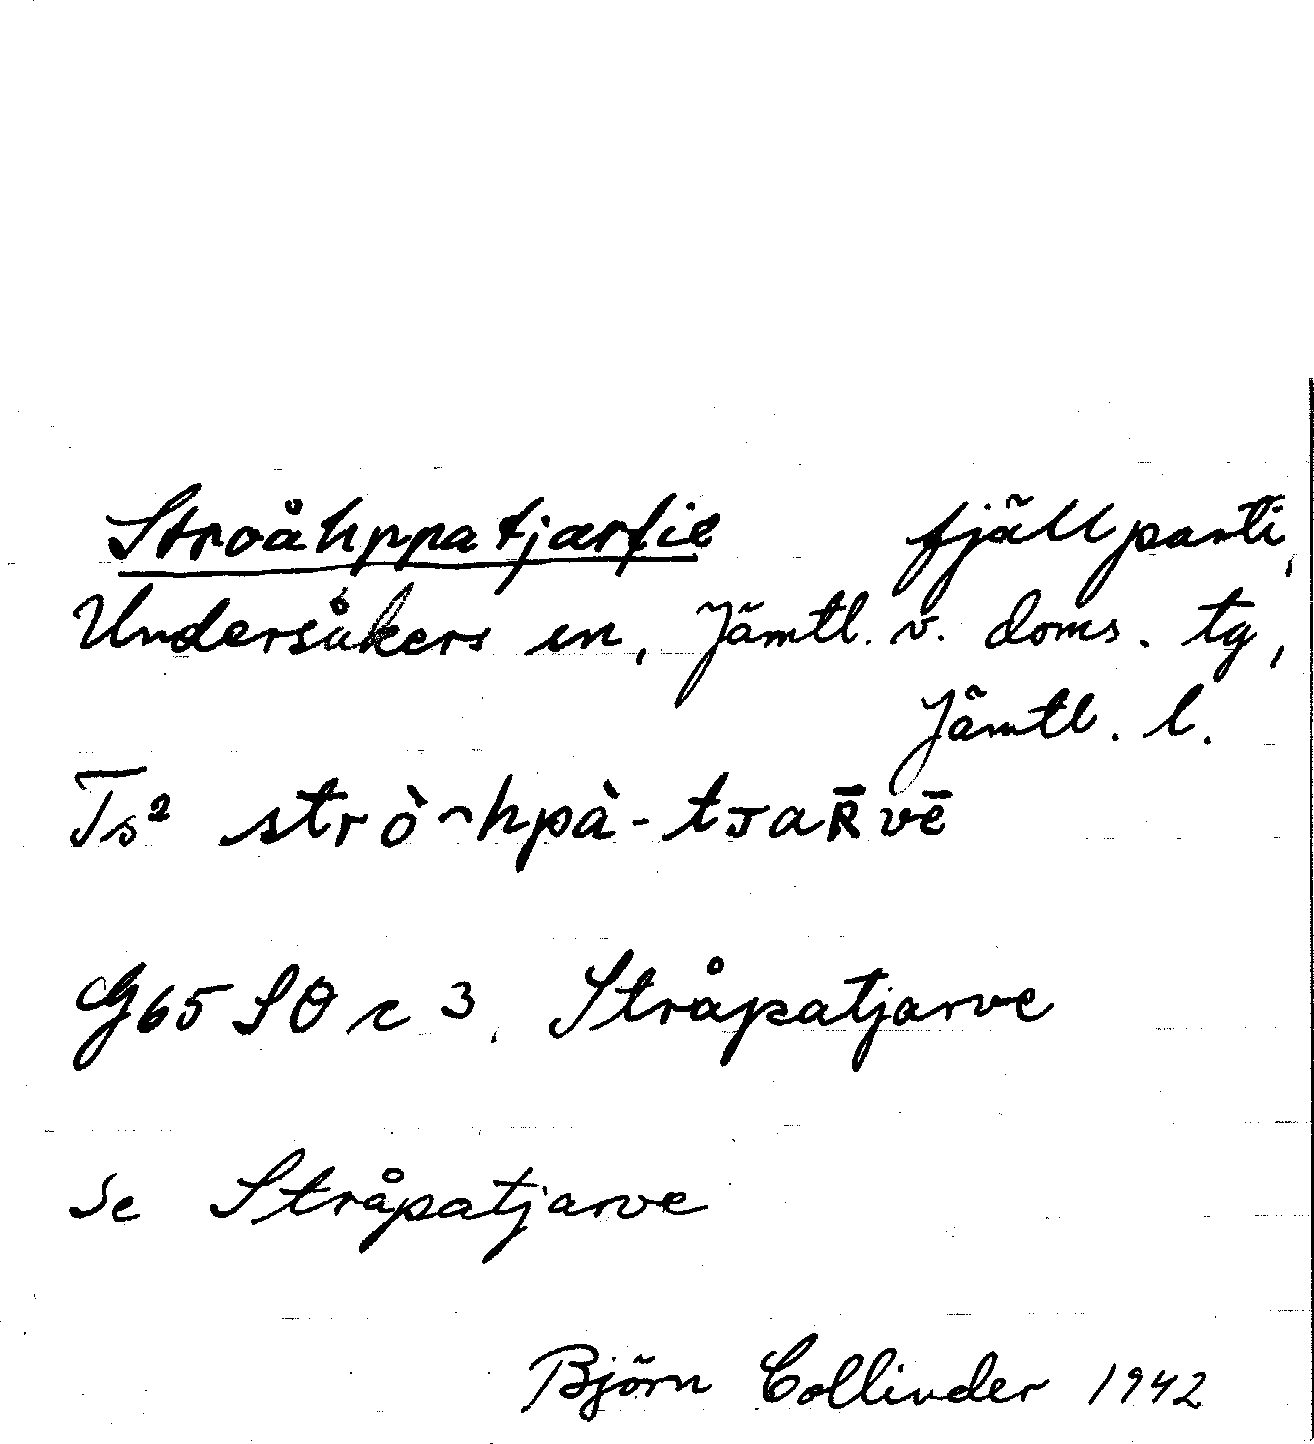 Stroåhppatjarfie fjällparti,
Undersåkers sn, Jämtl. v. doms. tg,
Jämtl. l.
Ts² strò⌢hpà-tᴊaʀ̄vē
G65 SO c 3, Stråpatjarve
Se Stråpatjarve
Björn Collinder 1942